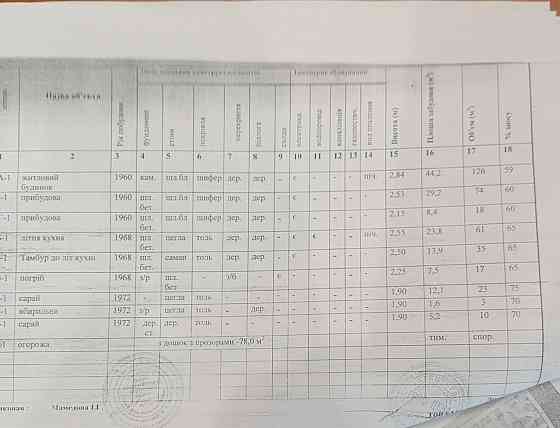 Назва об'єкта
Рік побудови
фундамент
стіни
покрівля
перекриття
підлога
сходи
електрика
водопровід
каналізація
Висота (м)
Площа забудови (м²)
Об'єм (м³)
% зносу
2 3 4 5 6 7 8 9 10 11 12 13 14 15 16 17 18
А-1 житловий 1960 кам. шл.бл шифер дер. дер. - є - - - піч. 2,84 44,2 126 59
будинок
-1 прибудова 1960 шл. шл.бл шифер дер. дер. - є - - - - 2,53 29,2 74 60
бет.
-1 прибудова 1960 шл. шл.бл шифер дер. дер. - є - - - - 2,15 8,4 18 60
бет.
-1 літня кухня 1968 шл. цегла толь дер. дер. - є є - - піч. 2,55 23,8 61 65
бет.
-1 Тамбур до літ кухні 1968 шл. саман толь дер. дер. - є - - - - 2,50 13,9 35 65
бет.
-1 погріб 1968 з/р шл. - з/б - є - - - - - 2,25 7,5 17 65
бет
-1 сарай 1972 - цегла толь - - - - - - - - 1,90 12,1 23 75
-1 вбиральня 1972 з/р цегла толь - дер. - - - - - - 1,90 1,6 3 70
-1 сарай 1972 дер. дер. толь - - - - - - - - 1,90 5,2 10 70
ст.
огорожа з дошок з прозорами -78,0 м² тим. спор.